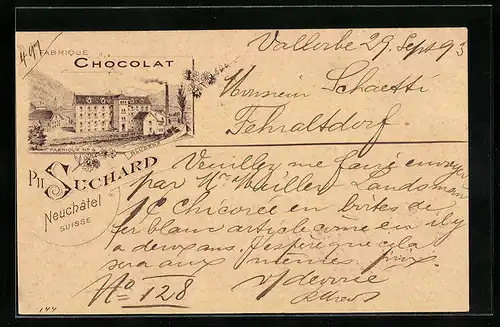 497
FABRIQUE
CHOCOLAT
FABRIQUE No 5
PH. SUCHARD
Neuchâtel
SUISSE
Vallorbe 29 Sept 93
Monsieur Schaetti
Fehraltdorf
Veuillez me faire envoyer
par Mr Muller Landsman
1 C chicorée en boites de
fer blanc article come en il y
a deux ans. J'espère que cela
sera aux mêmes prix.
No 128
144